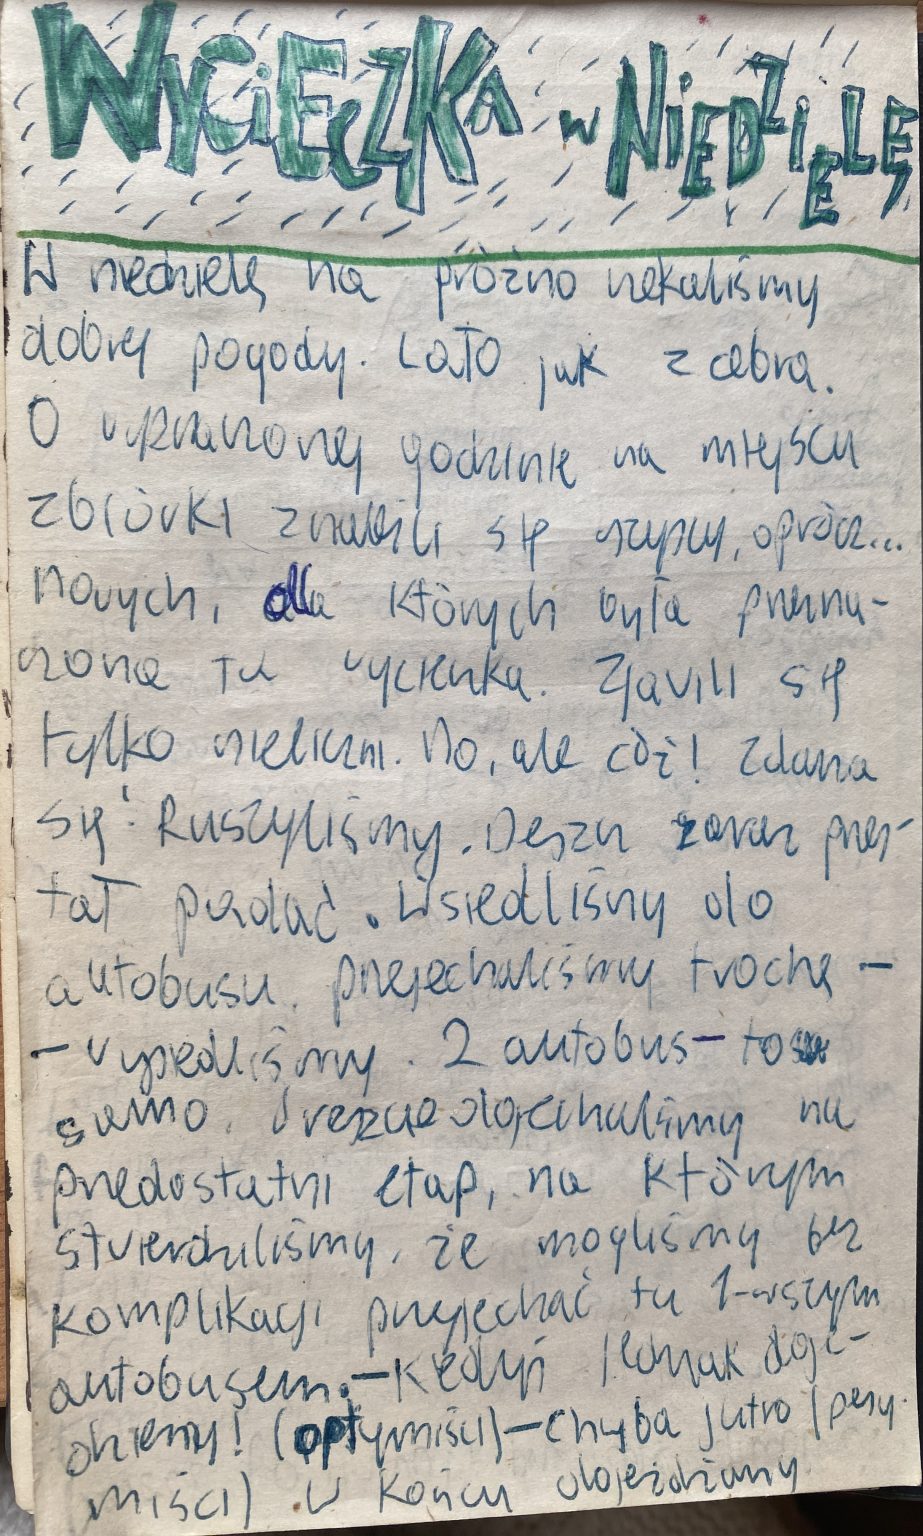 WYCIECZKA w NIEDZIELĘ
W niedzielę na próżno czekaliśmy
dobrej pogody. Lało jak z cebra.
O wyznaczonej godzinie na miejscu
zbiórki znaleźli się wszyscy, oprócz...
nowych, dla których była przezna-
czona ta wycieczka. Zjawili się
tylko nieliczni. No, ale cóż! Zdarza
się! Ruszyliśmy. Deszcz zaraz przes-
tał padać. Wsiedliśmy do
autobusu, przejechaliśmy trochę -
- wysiedliśmy. 2 autobus - to
samo. Wreszcie dojechaliśmy na
przedostatni etap, na którym
stwierdziliśmy, że mogliśmy bez
komplikacji przyjechać tu 1-wszym
autobusem. - Kiedyś jednak doje-
dziemy! (optymiści) - Chyba jutro (pesy-
miści) W końcu dojeżdżamy